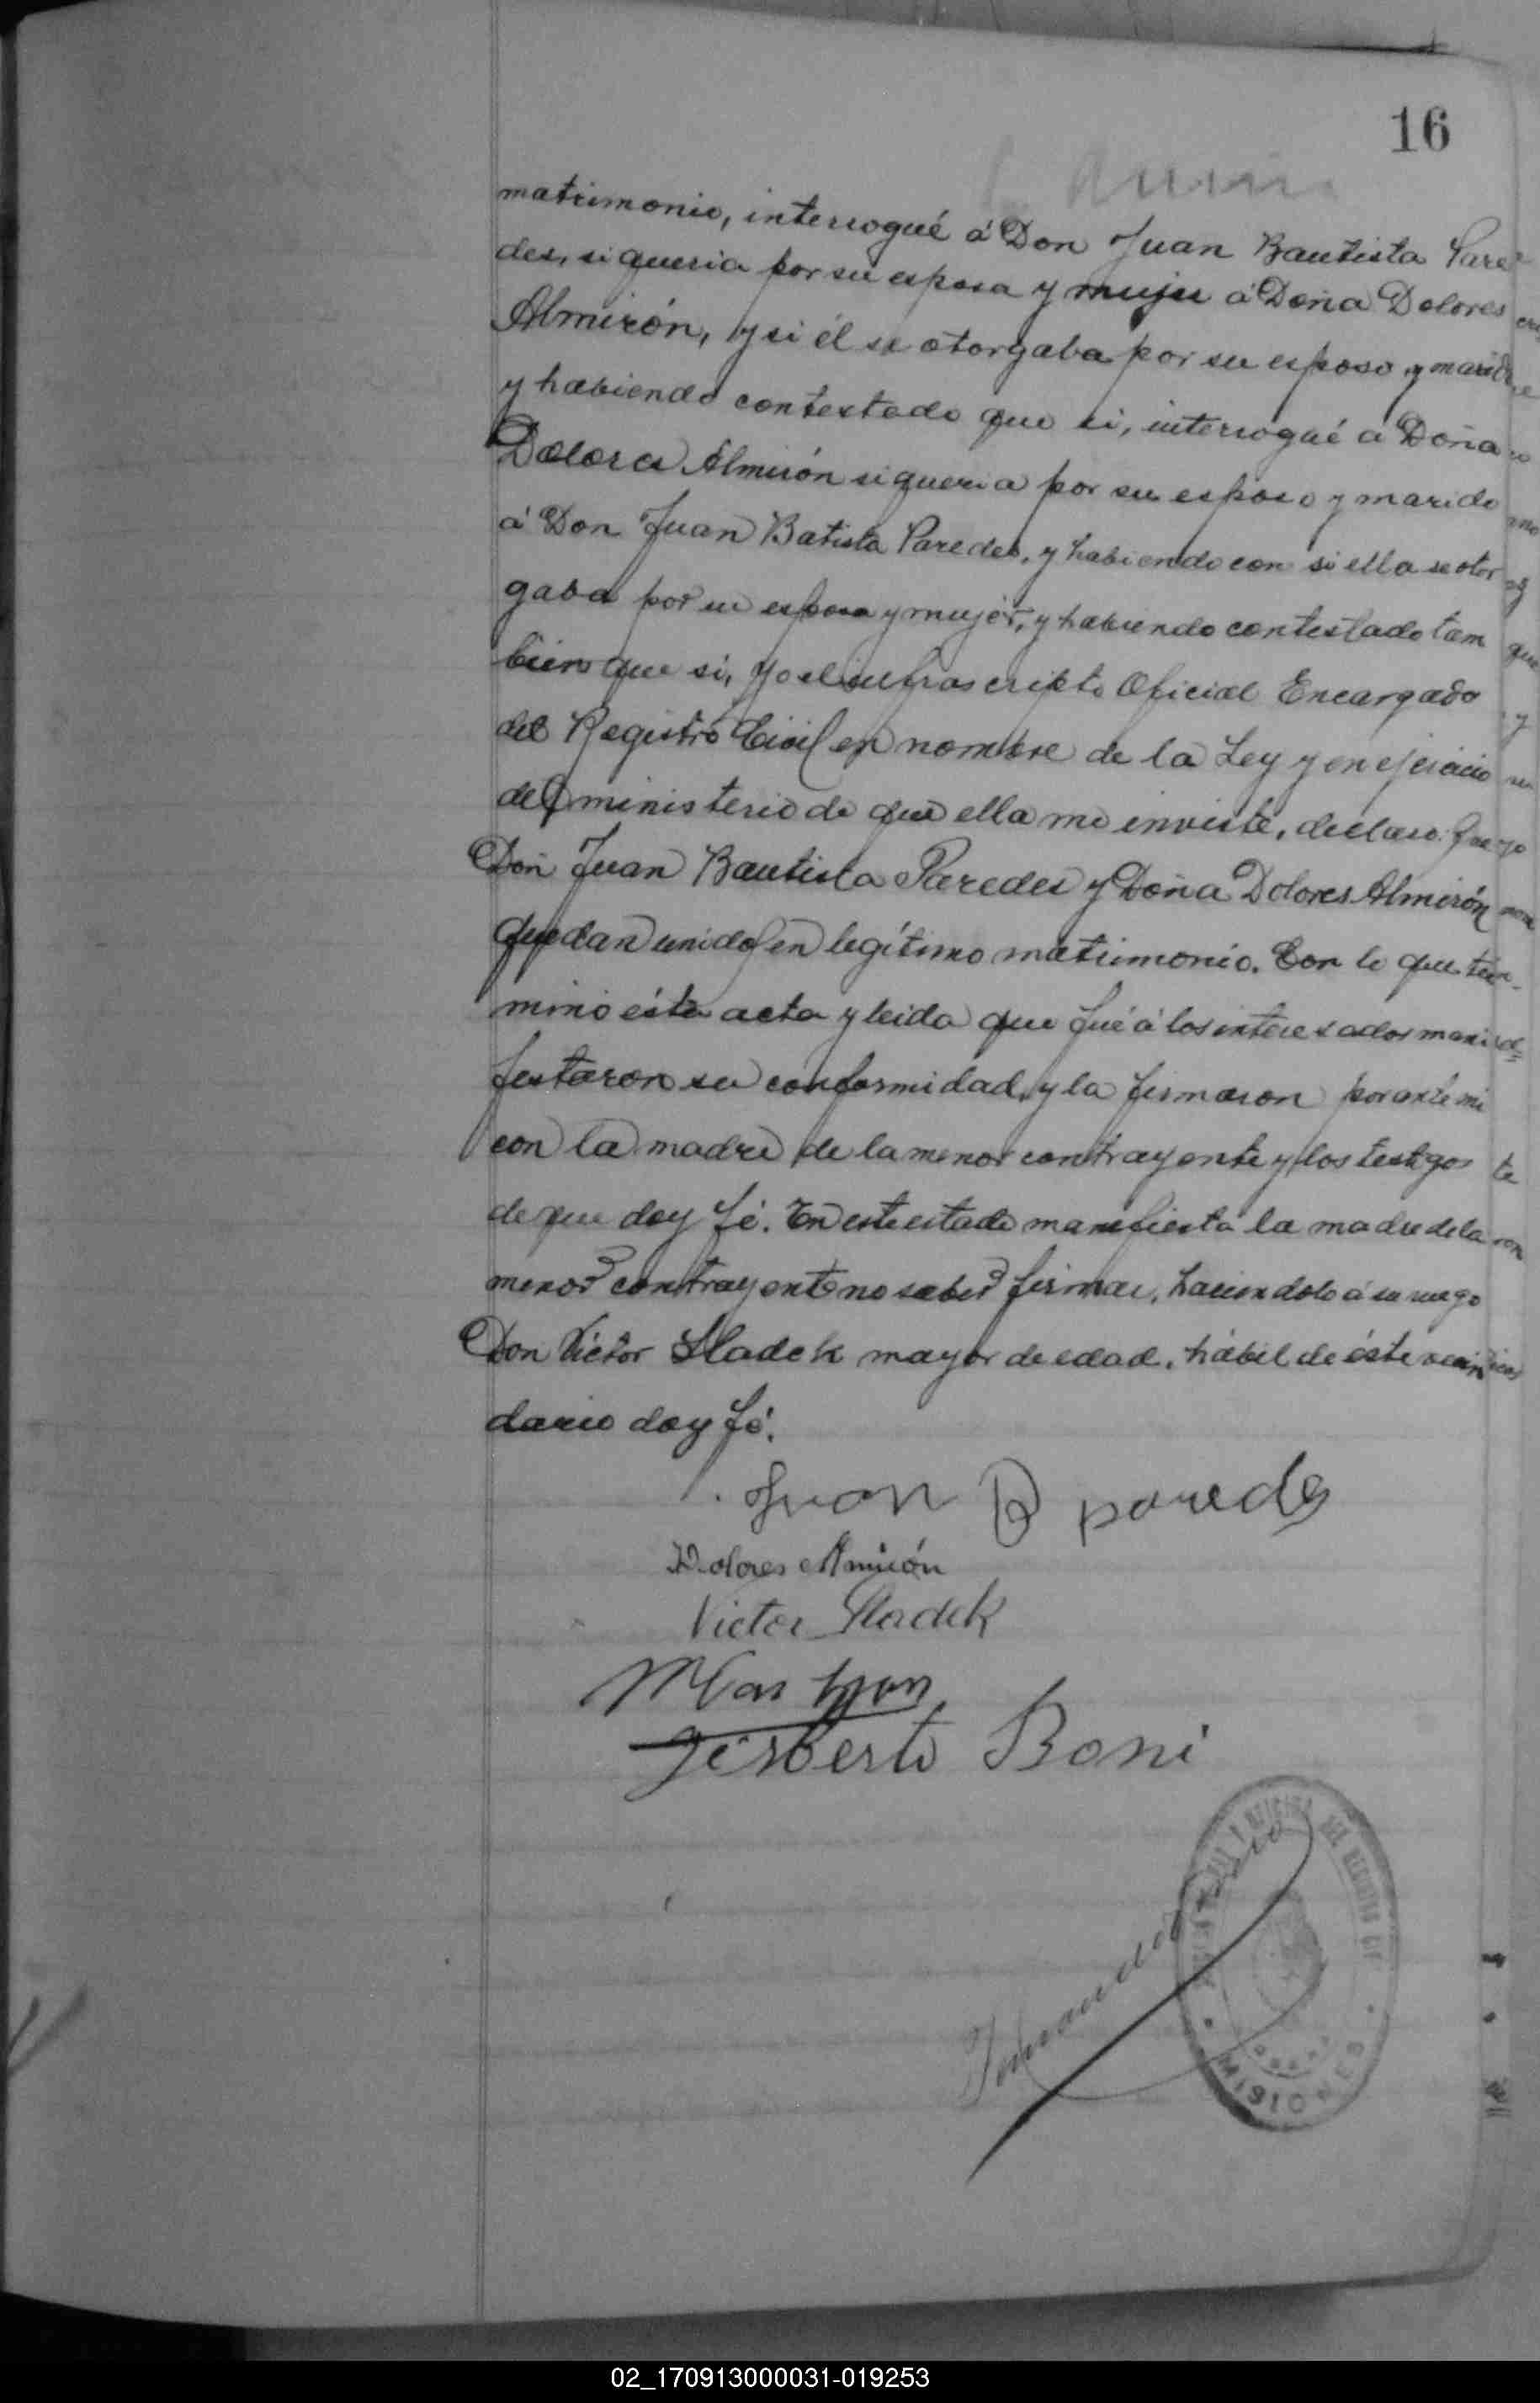 16
matrimonio, interrogué á Don Juan Bautista Pare
des, si queria por su esposa y mujer á Doña Dolores
Almirón, y si él se otorgaba por su esposo y marido
y habiendo contestado que si, interrogué á Doña
Dolores Almirón si queria por su esposo y marido
á Don Juan Batista Paredes, y habiendo con si ella se otor
gaba por su esposa y mujer, y habiendo contestado tam
bien que si, yo el infrascripto Oficial Encargado
del Registro Civil en nombre de la Ley y en ejercicio
del ministerio de que ella me inviste, declaro: Que
Don Juan Bautista Paredes y Doña Dolores Almirón
quedan unidos en legítimo matrimonio. Con lo que ter-
minó ésta acta y leida que fué á los interesados mani
festaron su conformidad, y la firmaron por ante mi
con la madre de la menor contrayente y los testigos
de que doy fé. En este estado manifiesta la madre de la
menor contrayente no saber firmar, haciendolo á su ruego
Don Victor Sladek mayor de edad, hábil de éste vecin
dario doy fé.
Juan B paredes
Dolores Almirón
Victor Sladek
Gisberto Boni
DEL REGISTRO CIVIL
MISIONES
02_170913000031-019253